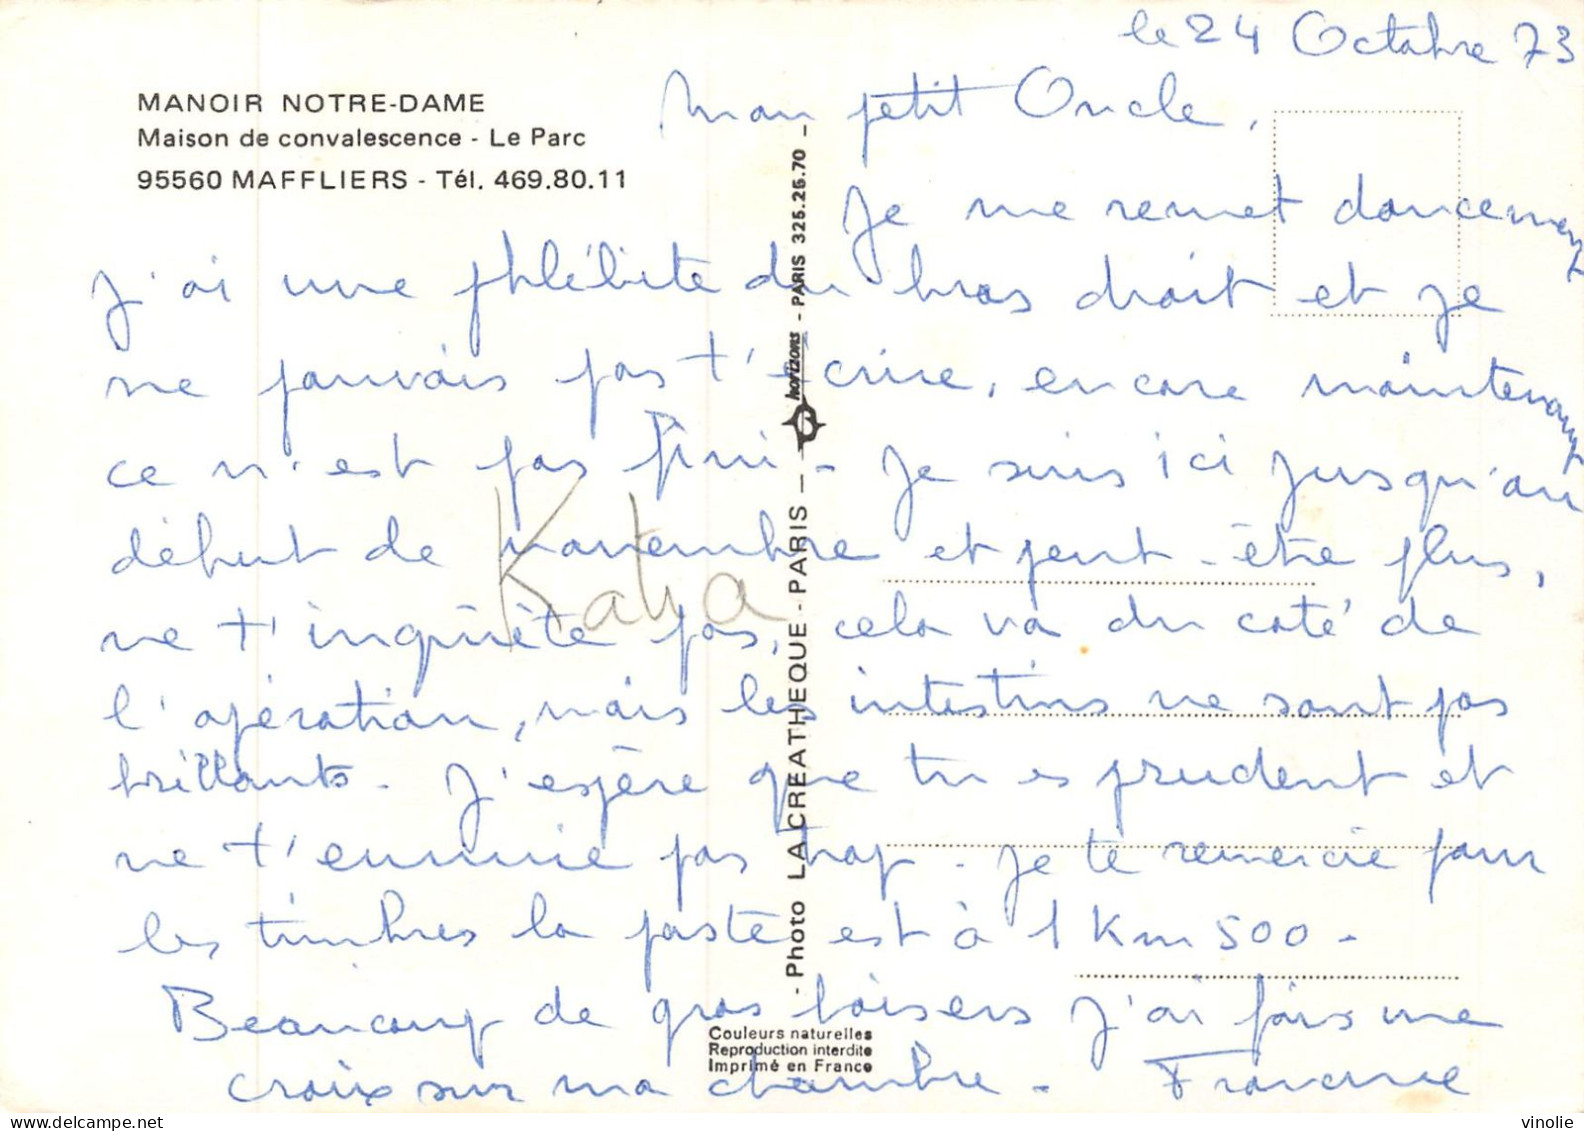 le 24 Octobre 73
MANOIR NOTRE-DAME
Maison de convalescence - Le Parc
95560 MAFFLIERS - Tél. 469.80.11
Mon petit Oncle,
Je me remet doucement
J'ai une phlébite du bras droit et je
ne pouvais pas t'écrire, encore maintenant
ce n'est pas fini - Je suis ici jusqu'au
début de novembre et peut-être plus,
ne t'inquiète pas, cela va du coté de
l'opération, mais les intestins ne sont pas
brillants - J'espère que tu es prudent et
ne t'ennuie pas trop - Je te remercie pour
les timbres la poste est à 1 Km 500 -
Beaucoup de gros baisers J'ai fais une
croix sur ma chambre - Francine
Katia
- Photo LA CREATHEQUE - PARIS - horizons - PARIS 325.26.70 -
Couleurs naturelles
Reproduction interdite
Imprimé en France
vinolie